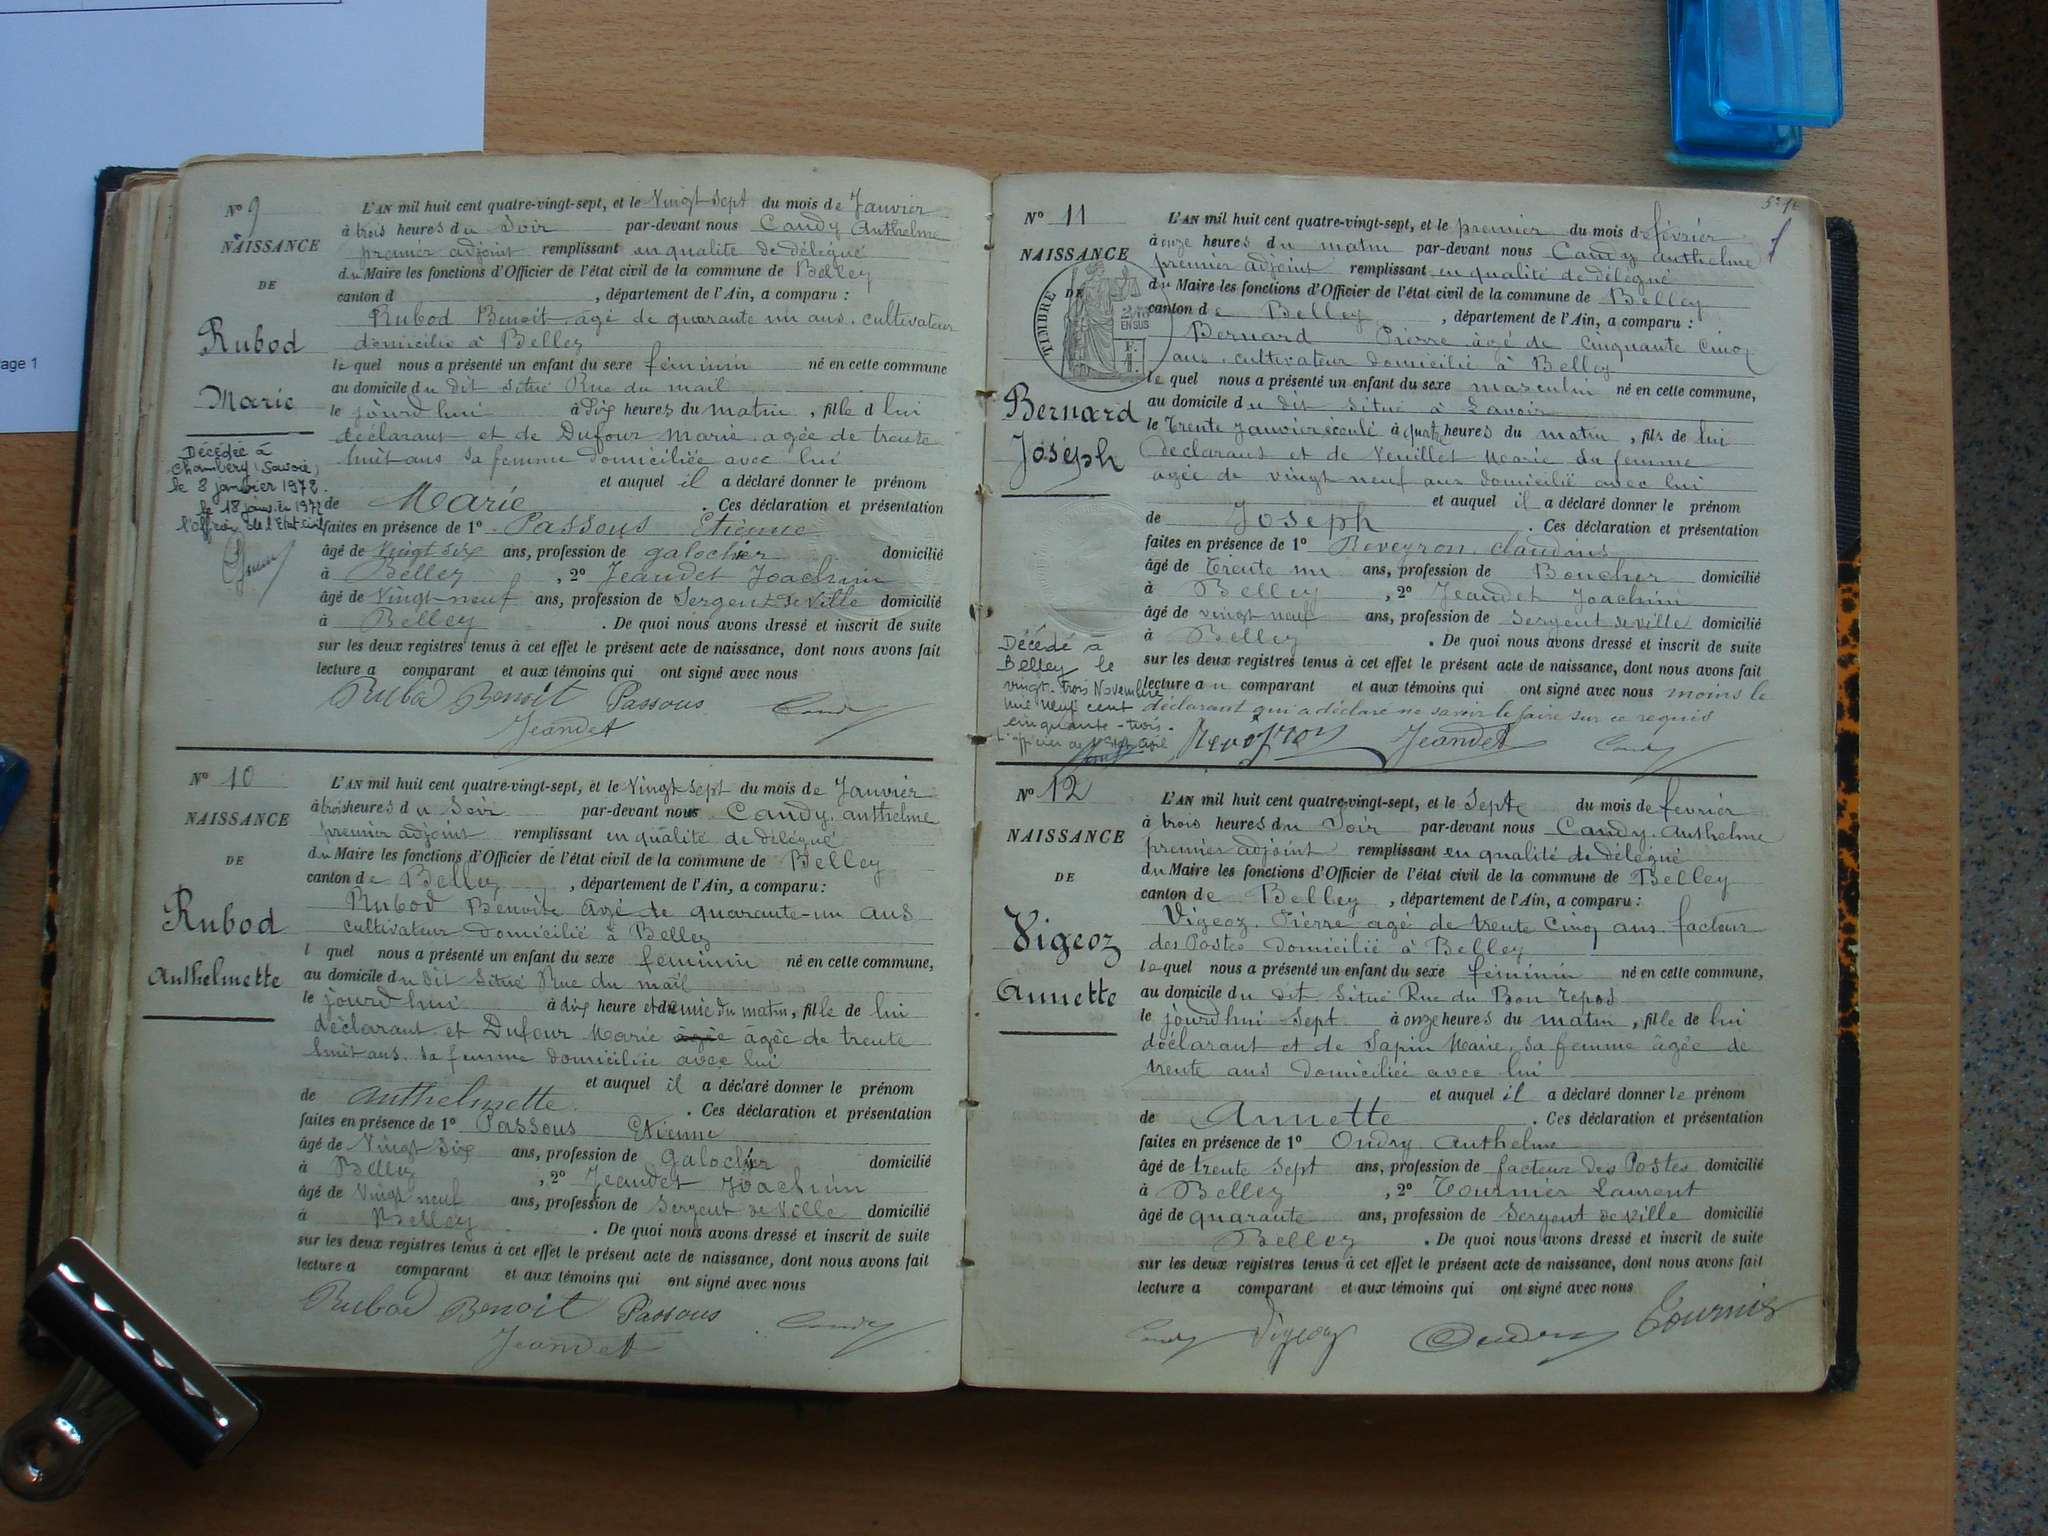 age 1
N° 9
NAISSANCE
DE
Rubod
Marie
Décédée à
Chambéry (Savoie)
le 8 janvier 1972.
le 18 janvier 1972
l'officier de l'Etat civil
L'AN mil huit cent quatre-vingt-sept, et le Vingt sept du mois de Janvier
à trois heures du Soir par-devant nous Candy Anthelme
premier adjoint remplissant en qualité de délégué
du Maire les fonctions d'Officier de l'état civil de la commune de Belley
canton d , département de l'Ain, a comparu :
Rubod Benoit âgé de quarante un ans. cultivateur
domicilié à Belley
lequel nous a présenté un enfant du sexe féminin né en cette commune
au domicile du dit situé Rue du mail
le jourd'hui à dix heures du matin, fille d lui
déclarant et de Dufour Marie agée de trente
huit ans sa femme domiciliée avec lui
et auquel il a déclaré donner le prénom
de Marie . Ces déclaration et présentation
faites en présence de 1° Passous Etienne
âgé de Vingt six ans, profession de galochier domicilié
à Belley , 2° Jeandet Joachim
âgé de Vingt-neuf ans, profession de Sergent de Ville domicilié
à Belley . De quoi nous avons dressé et inscrit de suite
sur les deux registres tenus à cet effet le présent acte de naissance, dont nous avons fait
lecture a comparant et aux témoins qui ont signé avec nous
Rubod Benoit Passous Candy
Jeandet
N° 10
NAISSANCE
DE
Rubod
Anthelmette
L'AN mil huit cent quatre-vingt-sept, et le Vingt sept du mois de Janvier
à trois heures du Soir par-devant nous Candy. anthelme
premier adjoint remplissant en qualité de délégué
du Maire les fonctions d'Officier de l'état civil de la commune de Belley
canton de Belley , département de l'Ain, a comparu :
Rubod Benoite âgé de quarante-un ans
cultivateur domicilié à Belley
l quel nous a présenté un enfant du sexe feminin né en cette commune,
au domicile du dit situé Rue du mail
le jourd'hui à dix heure et demie du matin, fille de lui
déclarant et Dufour Marie agée âgée de trente
huit ans. sa femme domiciliée avec lui
et auquel il a déclaré donner le prénom
de anthelmette . Ces déclaration et présentation
faites en présence de 1° Passous Etienne
âgé de Vingt six ans, profession de galochier domicilié
à Belley , 2° Jeandet Joachim
âgé de Vingt neuf ans, profession de Sergent de Ville domicilié
à Belley . De quoi nous avons dressé et inscrit de suite
sur les deux registres tenus à cet effet le présent acte de naissance, dont nous avons fait
lecture a comparant et aux témoins qui ont signé avec nous
Rubod Benoit Passous Candy
Jeandet
N° 11
NAISSANCE
DE
TIMBRE
EN SUS
Bernard
Joséph
Décédé à
Belley le
vingt-trois Novembre
mil neuf cent
cinquante-trois.
L'officier de l'Etat civil
L'AN mil huit cent quatre-vingt-sept, et le premier du mois de février
à onze heures du matin par-devant nous Candy anthelme
premier adjoint remplissant en qualité de délégué
du Maire les fonctions d'Officier de l'état civil de la commune de Belley
canton de Belley , département de l'Ain, a comparu :
Bernard Pierre âgé de Cinquante Cinq
ans. cultivateur domicilié à Belley
lequel nous a présenté un enfant du sexe masculin né en cette commune,
au domicile du dit situé à Lavoir
le Trente Janvier écoulé à quatre heures du matin, fils de lui
declarant et de Veuillet Marie sa femme
agée de vingt neuf ans domiciliée avec lui
et auquel il a déclaré donner le prénom
de Joseph . Ces déclaration et présentation
faites en présence de 1° Reveyron. claudius
âgé de Trente un ans, profession de Boucher domicilié
à Belley , 2° Jeandet Joachim
âgé de vingt neuf ans, profession de Sergent de ville domicilié
à Belley . De quoi nous avons dressé et inscrit de suite
sur les deux registres tenus à cet effet le présent acte de naissance, dont nous avons fait
lecture au comparant et aux témoins qui ont signé avec nous moins le
déclarant qui a déclaré ne savoir le faire sur ce requis
Reveyron Jeandet Candy
N° 12
NAISSANCE
DE
Vigeoz
Annette
L'AN mil huit cent quatre-vingt-sept, et le Sept du mois de février
à trois heures du Soir par-devant nous Candy. Anthelme
premier adjoint remplissant en qualité de délégué
du Maire les fonctions d'Officier de l'état civil de la commune de Belley
canton de Belley , département de l'Ain, a comparu :
Vigeoz. Pierre agé de trente Cinq ans. facteur
des Postes domicilié à Belley
lequel nous a présenté un enfant du sexe feminin né en cette commune,
au domicile du dit. Situé Rue du Bon repos
le jourd'hui Sept à onze heures du matin, fille de lui
déclarant et de Sapin Marie, sa femme âgée de
trente ans domiciliée avec lui
et auquel il a déclaré donner le prénom
de Annette . Ces déclaration et présentation
faites en présence de 1° Ondry Anthelme
âgé de trente sept ans, profession de facteur des Postes domicilié
à Belley , 2° Tournier Laurent
âgé de quarante ans, profession de Sergent de ville domicilié
Belley . De quoi nous avons dressé et inscrit de suite
sur les deux registres tenus à cet effet le présent acte de naissance, dont nous avons fait
lecture a comparant et aux témoins qui ont signé avec nous
Candy Vigeoz Ondry Tournier